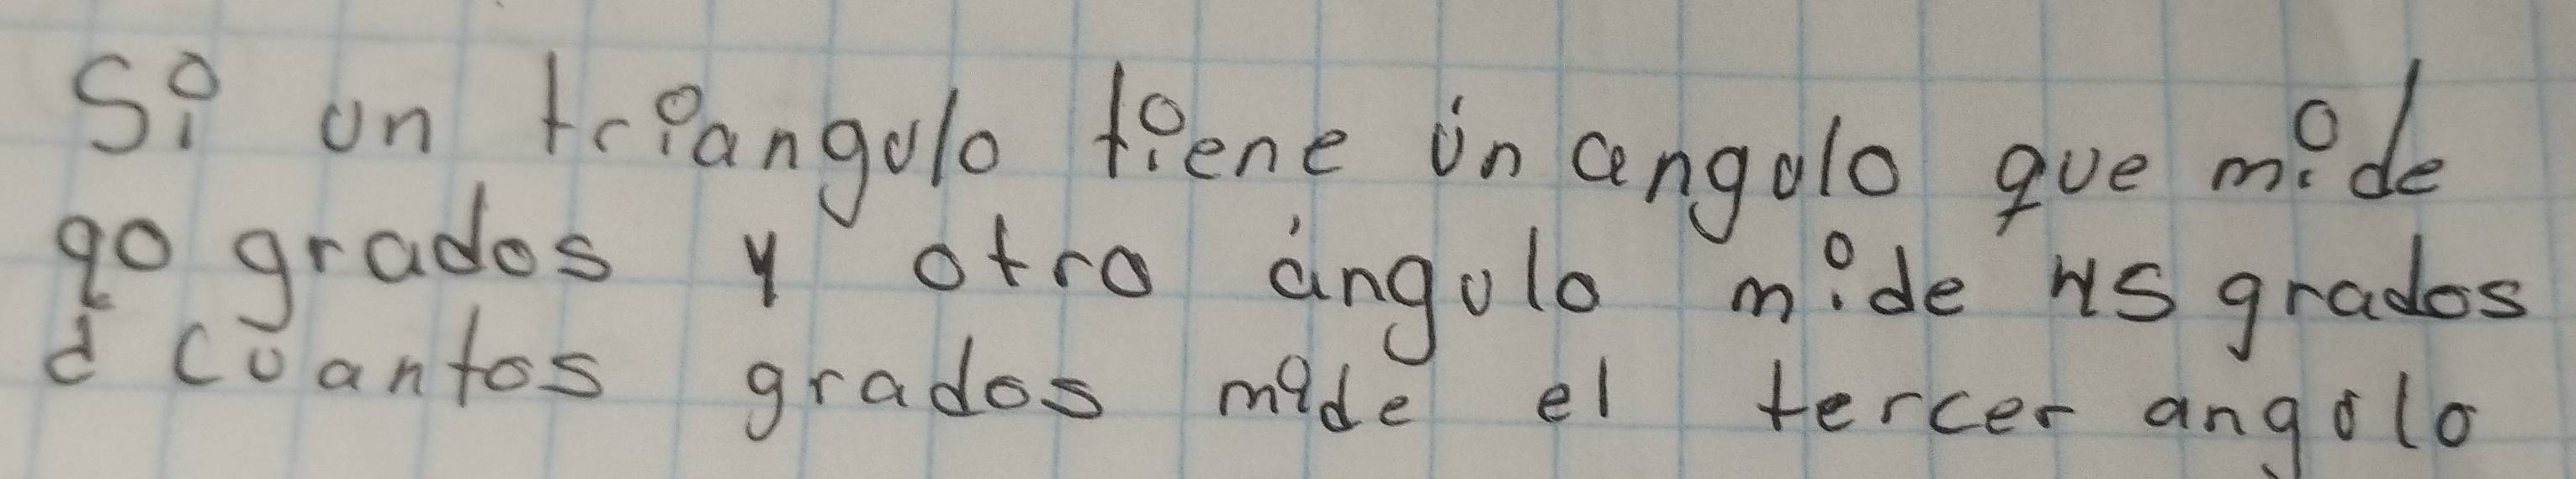 Si un triangulo tiene ún angulo que mide
90 grados y otro ángulo mide 45 grados
¿ cuantos grados mide el tercer angulo